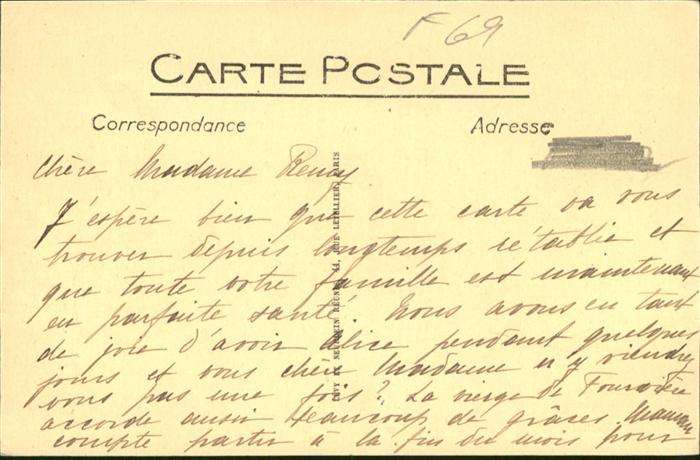 F 69
CARTE POSTALE
Correspondance
Adresse
chère Madame Remy
J'espère bien que cette carte va vous
trouver depuis longtemps rétablie et
que toute votre famille est maintenant
en parfaite santé. Nous avons eu tant
de joie d'avoir Alice pendant quelques
jours et vous chère Madame n'y viendrez
vous pas une fois? La vierge de Fourvière
accorde aussi beaucoup de grâces. Maman
compte partir à la fin du mois pour
LEVY ET NEURDEIN REUNIS, 44, RUE LETELLIER, PARIS